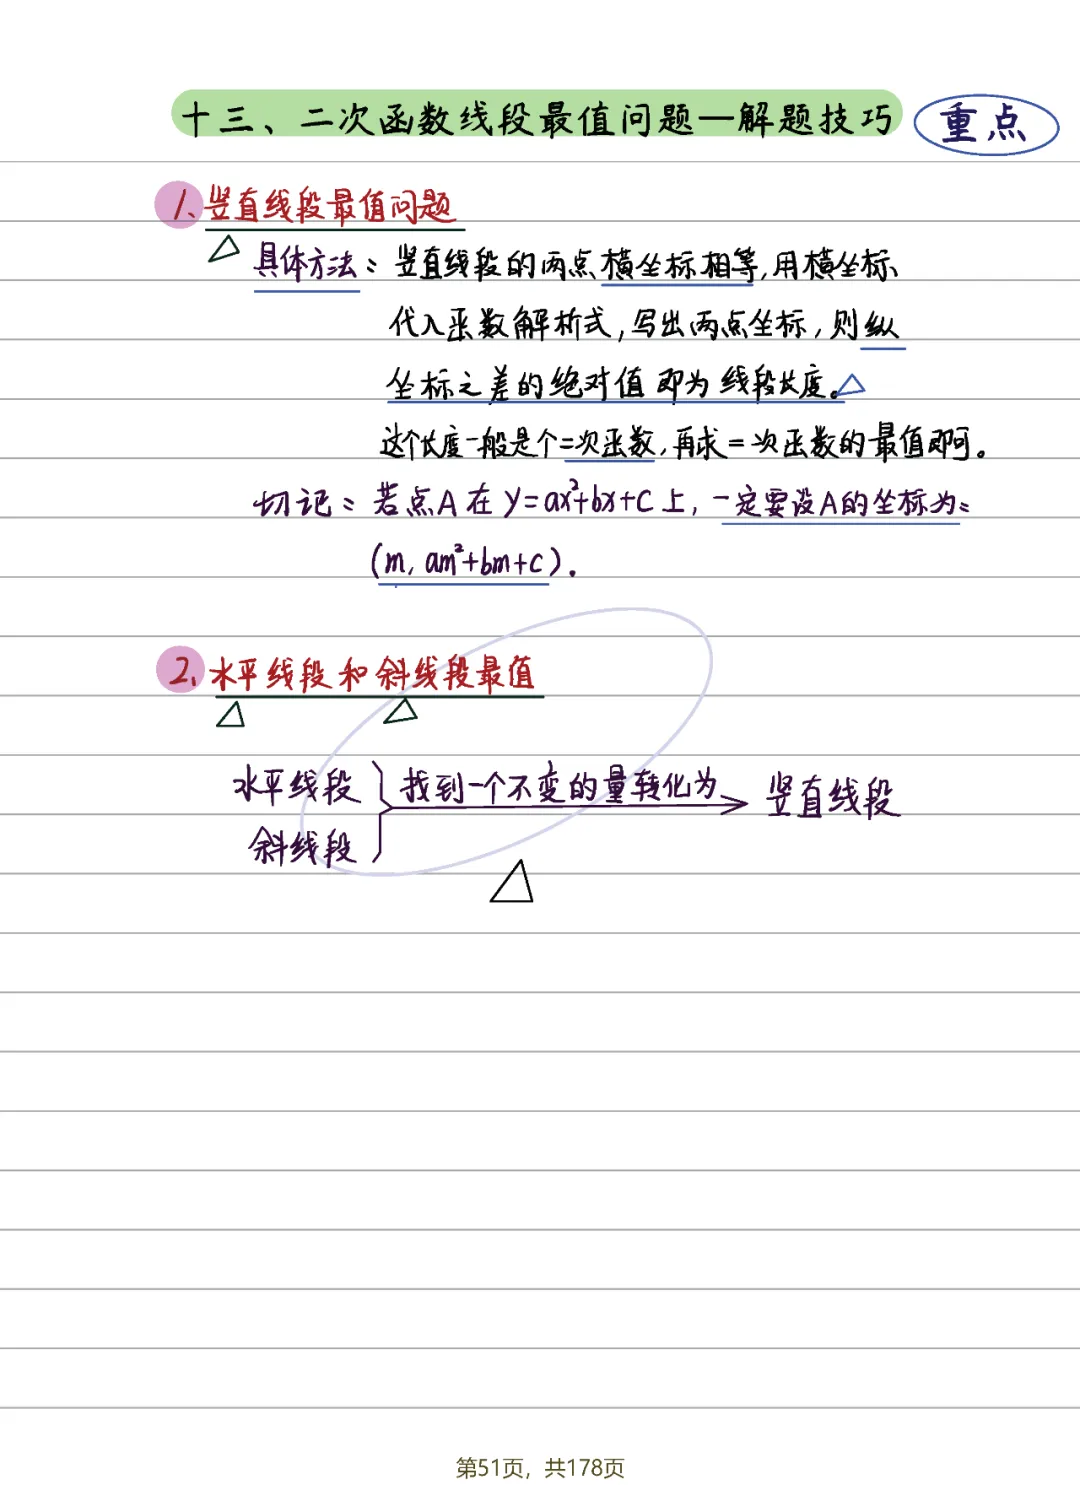 十三、二次函数线段最值问题—解题技巧 重点
1、竖直线段最值问题
具体方法：竖直线段的两点横坐标相等,用横坐标、
代入函数解析式,写出两点坐标,则纵
坐标之差的绝对值即为线段长度。
这个长度一般是个二次函数,再求二次函数的最值即可。
切记：若点A在y=ax²+bx+C上,一定要设A的坐标为：
(m, am²+bm+c).
2、水平线段和斜线段最值
水平线段
斜线段
找到一个不变的量转化为
竖直线段
第51页，共178页